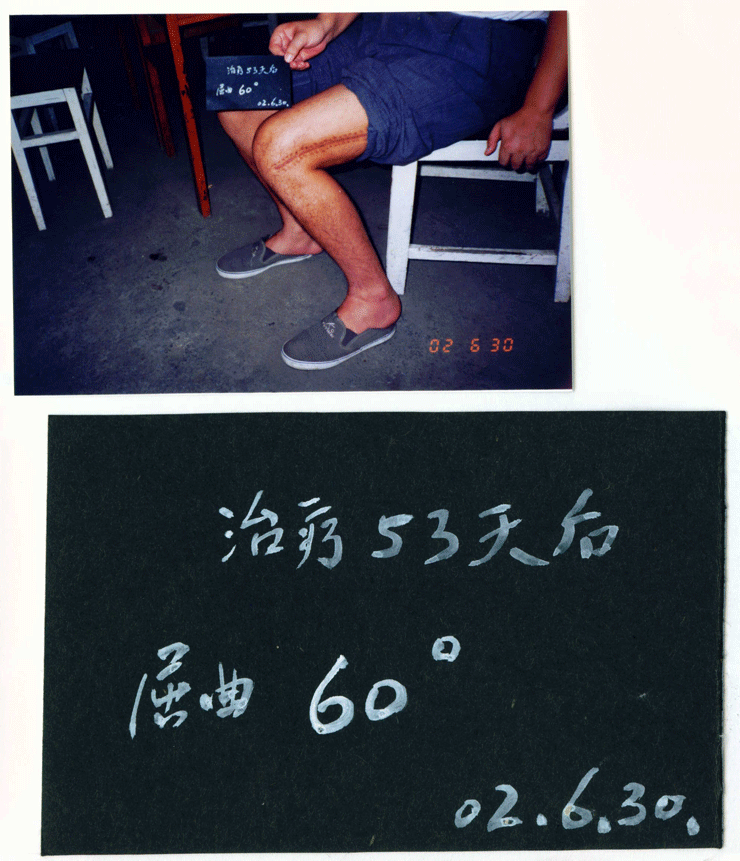 治疗53天后
屈曲 60°
02.6.30.
02 6 30
治疗53天后
屈曲 60°
02.6.30.